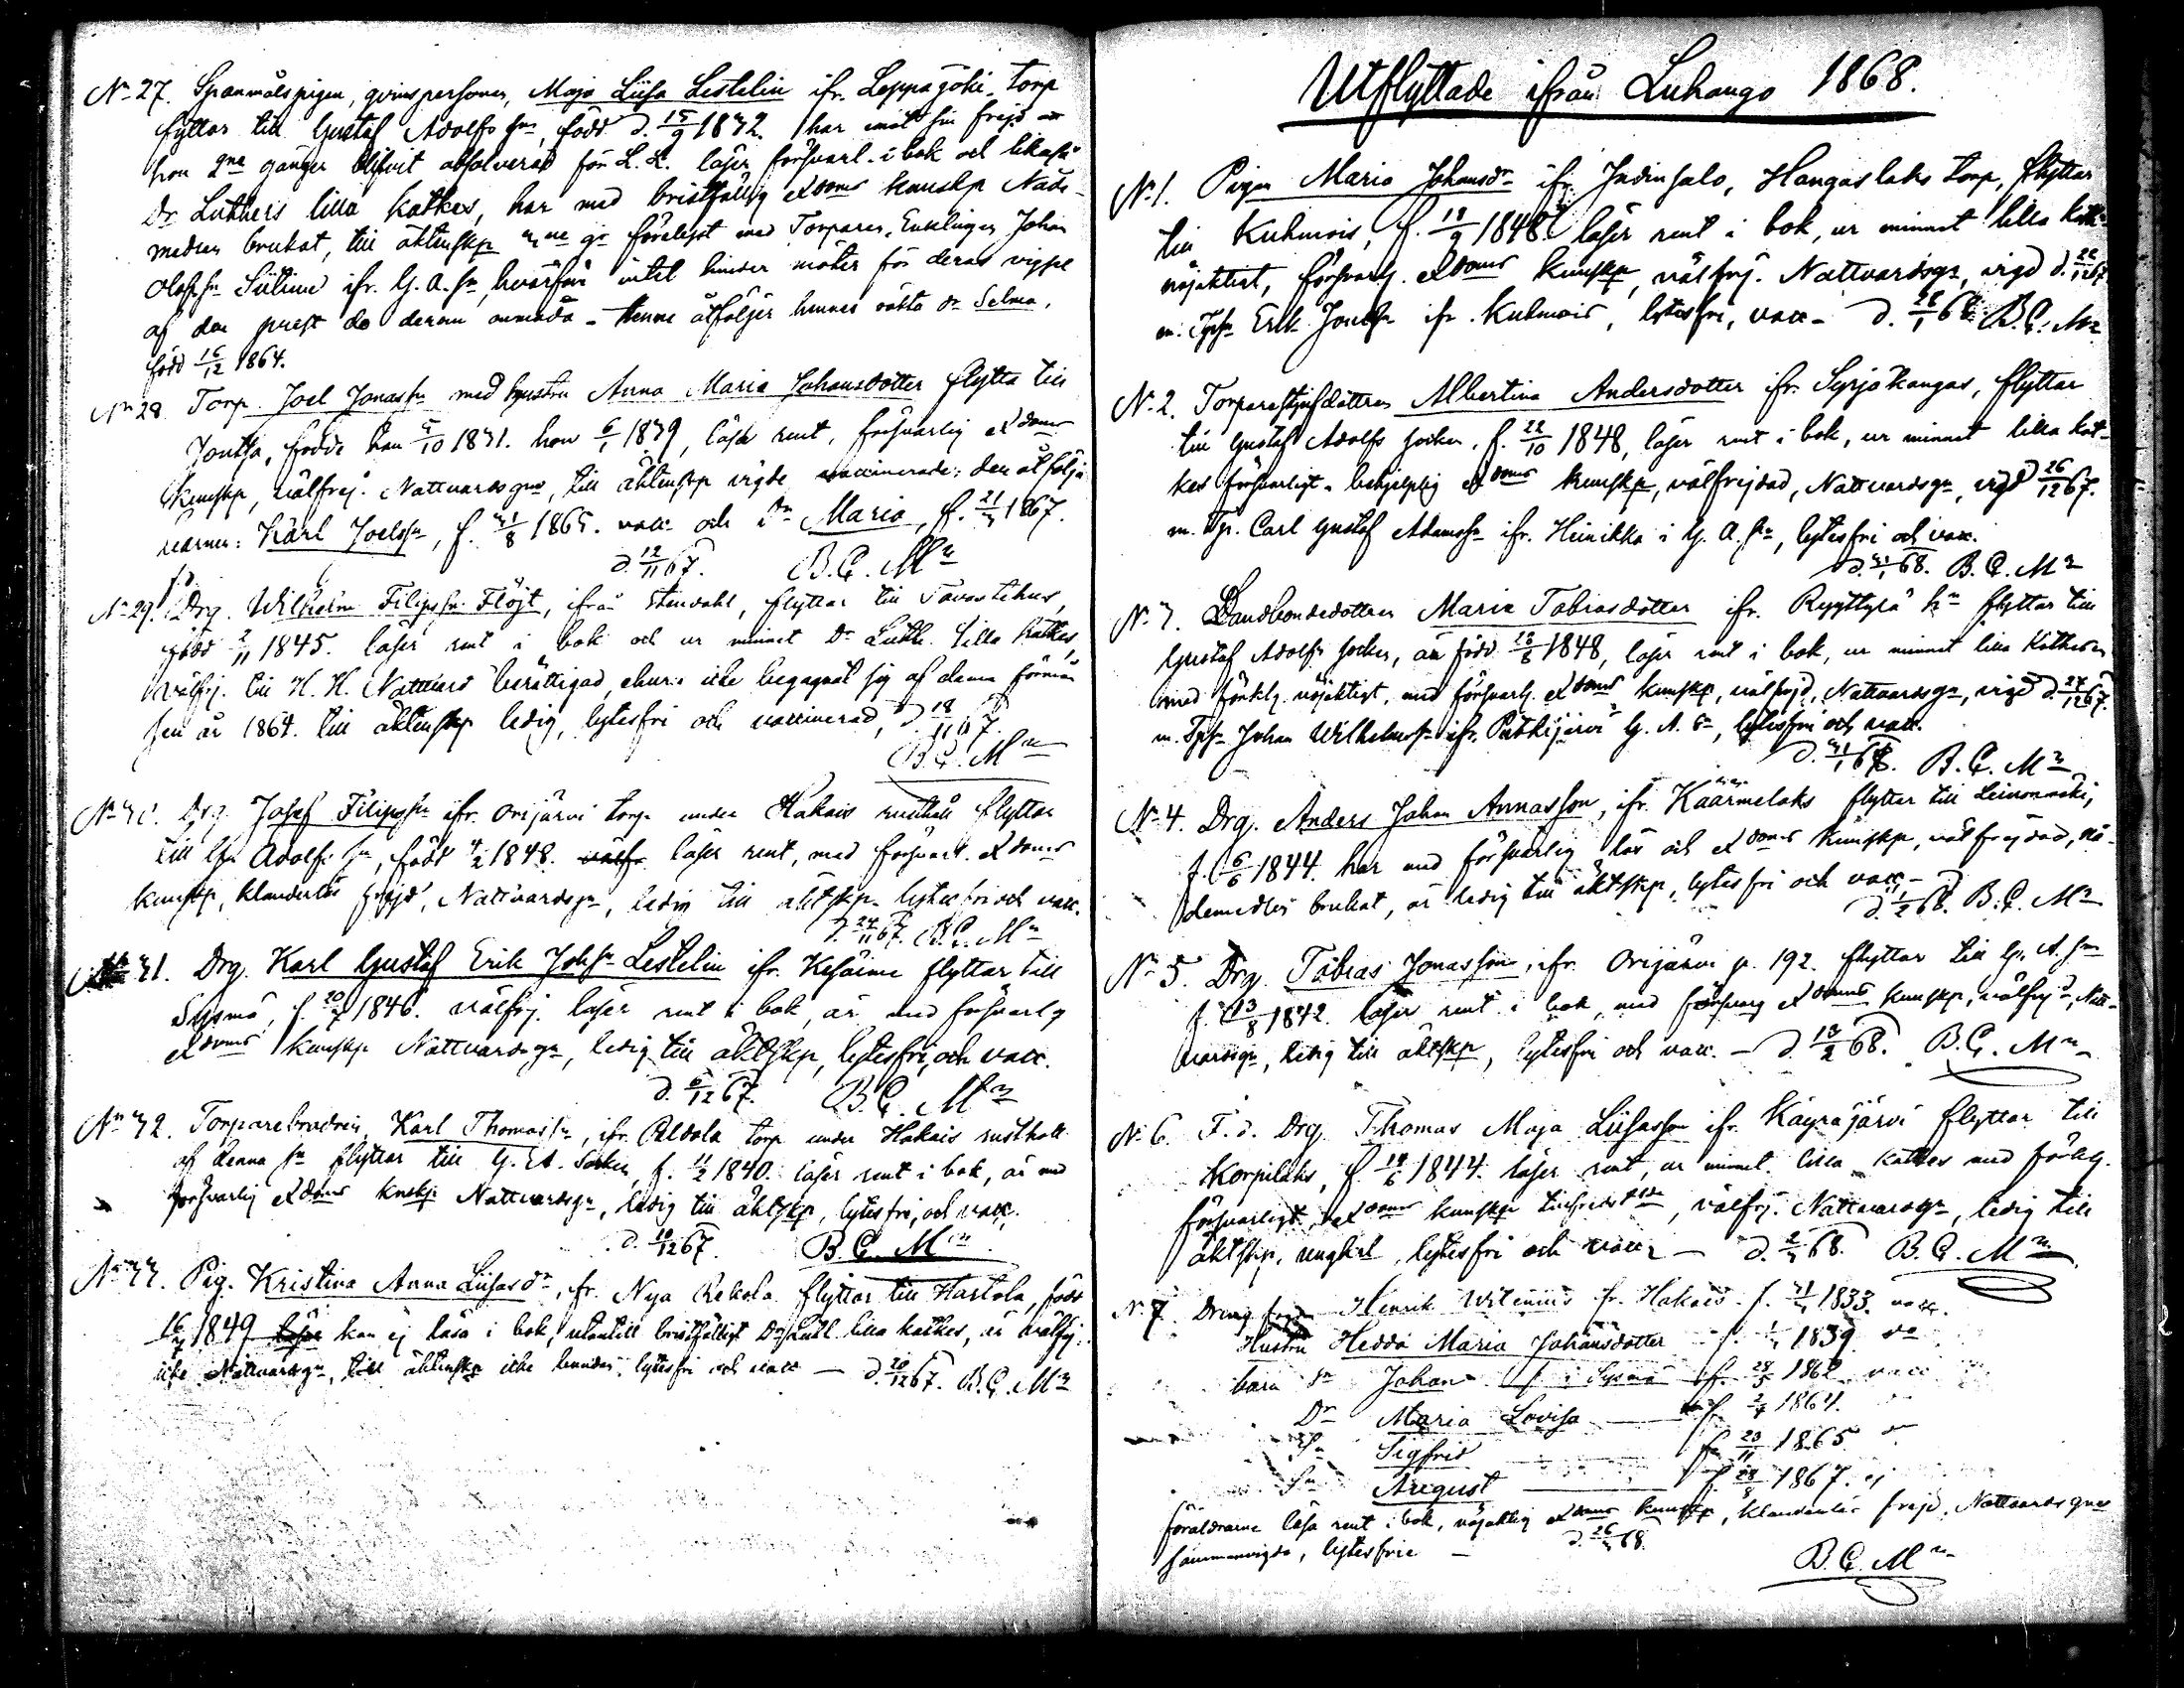 No 27. Spanmålspigan, qvinspersonen, Maja Liisa Lestelin ifr. Leppäjoki torp
flyttar till Gustaf Adolfs sn, född d. 15/9 1832. har emot sin frejd att
hon 2ne gånger blifvit absolverad för L. L. läser försvarl. i bok och likaså
Dr Luthers lilla katkes, har med bristfällig Xdoms kunskp Nåde-
medlen brukat, till äktenskp 3ne gr förelyst med Torparen, Enklingen Johan
Olofsn Siitinen ifr. G. A. sn, hvarföre intet hinder möter för deras vigsel
af den prest de derom anmoda - Henne åtföljer hennes oäkta dr Selma,
född 16/12 1864.
No 28 Torp. Joel Jonassn med hustru Anna Maria Johansdotter flytta till
Joutsa, födde han 5/10 1831. hon 6/1 1839, läsa rent, försvarlig Xdoms
kunskp, välfrej. Nattvardsgne, till äktenskp vigde vaccinerade; dem åtfölja
barnen: Karl Joelssn, f. 31/8 1865. vacc. och dr Maria, f. 21/3 1867.
d. 12/11 67. B. G. Mn
No 29. Drg. Wilhelm Filipssn Flöjt, ifrån Stendahl, flyttar till Tavastehus,
född 2/11 1845. läser rent i bok och ur minnet Dr Luth. lilla katkes,
välfrj. till H. H. Nattvard berättigad, ehuru icke begagnat sig af denna förmån
sen år 1864. till äktenskp ledig, lytesfri och vaccinerad, d. 18/11 67.
B. G. Mn
No 30. Drg. Josef Filipssn ifr. Orijärvi torp under Hakais rusthåll flyttar
till G. Adolfs sn, född 4/2 1848. välfr. läser rent, med försvarl. Xdoms
kunskp, klanderlös frejd, Nattvardsgn, ledig till äktskp. lytesfri och vacc.
d. 24/11 67. B. G. Mn
No 31. Drg. Karl Gustaf Erik Johsn Lestelin ifr. flyttar till
Sysmä, f. 20/7 1846. välfrj. läser rent i bok, är med försvarlg
Xdoms kunskp Nattvardsgn, ledig till äktskp, lytesfri, och vacc.
d. 6/12 67. B. G. Mn
No 32. Torparebrodren, Karl Thomassn, ifr. torp under Hakais rusthåll
af denna sn flyttar till G. A. Socken, f. 11/2 1840. läser rent i bok, är med
försvarlig Xdoms knskp Nattvardsgn, ledig till äktskp, lytesfri, och vacc.
d. 10/12 67. B. G. Mn
No 33. Pig. Kristina Anna Liisasdr, fr. Nya Rekola flyttar till Hartola, född
16/7 1849 läser kan ej läsa i bok, utantill bristfälligt Dr Luth. lilla katkes, är välfrj.
icke Nattvardsgn, till äktenskp icke bunden, lytesfri och vacc - d. 20/12 67. B. G. Mn
Utflyttade ifrån Luhango 1868.
No 1. Pigan Maria Johansdr ifr. Judinsalo, Hangaslaks torp, flyttar
till Kuhmois, f. 18/9 1848. läser rent i bok, ur minnet lilla katk-
nöjaktigt, försvarlg. Xdoms kunskp, välfrj. Nattvardsgn, vigd d. 22/12 67
m. Tpsn Erik ifr. Kuhmois, lytesfri, vacc - d. 28/1 68 B. G. Mn
No 2. Torparestjufdottren Albertina Andersdotter ifr. Syrjökangas, flyttar
till Gustaf Adolfs socken, f. 22/10 1848, läser rent i bok, ur minnet lilla kat-
kes försvarligt - behjelplig Xdoms kunskp, välfrejdad, Nattvardsgn, vigd 26/12 67.
m. Tp. Carl Gustaf Adamssn ifr. Heinikka i G. A. sn, lytesfri och vacc.
d. 31/1 68. B. G. Mn
No 3. Landbondedottren Maria Tobiasdotter ifr. hn flyttar till
Gustaf Adolfs socken, är född 23/6 1848, läser rent i bok, ur minnet lilla Katkesen
med förklg. nöjaktigt, med försvarlg. Xdoms kunskp, välfrejd, Nattvardsgn, vigd d. 27/12 67.
m. Tpsn Johan Wilhelmssn ifr. G. A. sn, lytesfri och vacc.
d. 31/1 68. B. G. Mn
No 4. Drg. Anders Johan Annasson, ifr. Käärmelaks flyttar till Leivonmäki,
f. 6/6 1844. har med försvarlig läs och Xdoms kunskp, välfrejdad, nå-
demedlen brukat, är ledig till äktskp, lytesfri och vacc -
d. 11/2 68. B. G. Mn
No 5. Drg. Tobias Jonasson, ifr. Orijärvi p. 192. flyttar till G. A. sn
f. 13/8 1842. läser rent i bok, med försvarlg Xdoms kunskp, välfrejd, Natt-
vardsgn, ledig till äktskp, lytesfri och vacc. - d. 18/2 68. B. G. Mn
No 6. F. d. Drg. Thomas Maja Liisasson ifr. Käyräjärvi flyttar till
Korpilaks, f. 18/6 1844. läser rent, ur minnet lilla katkes med förklg.
försvarligt, Xdoms kunskp, välfrj. Nattvardsgn, ledig till
äktskp, ungkarl, lytesfri och vacc - d. 2/3 68. B. G. Mn
No 7. Dreng Henrik Witenius fr. Hakais f. 31/3 1833. vacc.
Hustru Hedda Maria Johansdotter f. 1839 do
barn Sn Johan f. i Sysmä f. 28/5 1862 vacc
Dr Maria Lovisa f. 2/7 1864.
Sn Sigfrid f. 23/11 1865
Sn August f. 28/8 1867. ej
föräldrarne läsa rent i bok, nöjaktig Xdoms kunskp, klanderlös frejd, Nattvardsgne
sammanvigda, lytesfrie - d. 26/3 68.
B. G. Mn